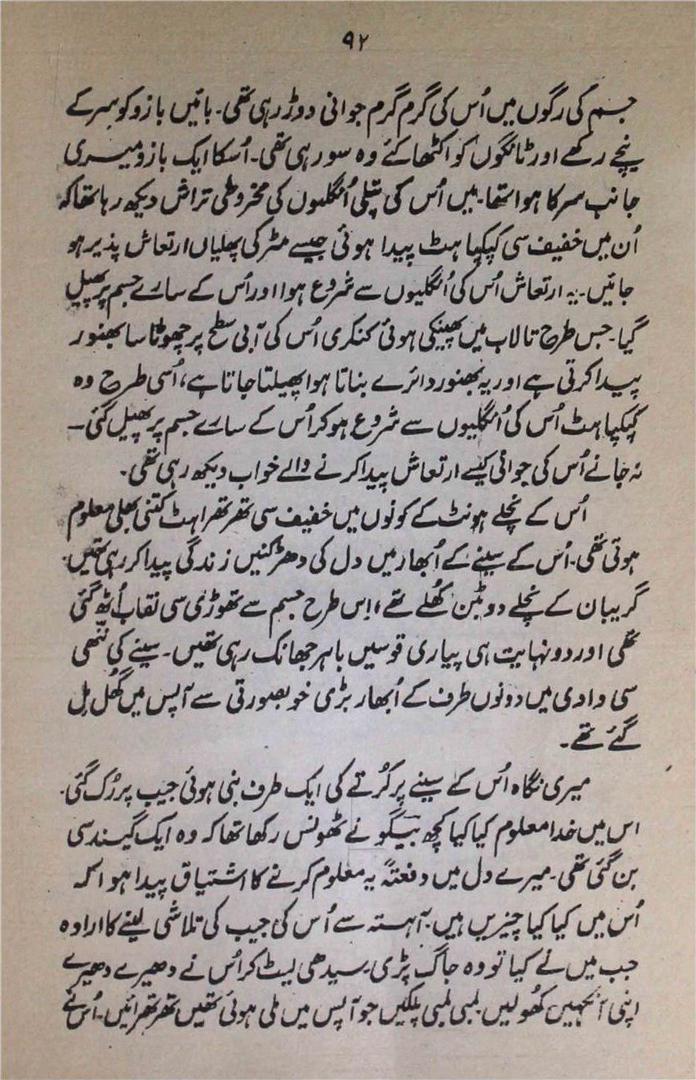 ۹۲
جسم کی رگوں میں اُس کی گرم گرم جوانی دوڑ رہی تھی۔ بائیں بازو کو سر کے
نیچے رکھے اور ٹانگوں کو اکٹھا کئے وہ سو رہی تھی۔ اُسکا ایک بازو میری
جانب سرکا ہوا تھا۔ میں اُس کی پتلی اُنگلیوں کی مخروطی تراش دیکھ رہا تھا کہ
اُن میں خفیف سی کپکپاہٹ پیدا ہوئی جیسے مٹر کی پھلیاں ارتعاش پذیر ہو
جائیں۔ یہ ارتعاش اُس کی اُنگلیوں سے شروع ہوا اور اُس کے سارے جسم پر پھیل
گیا۔ جس طرح تالاب میں پھینکی ہوئی کنکری اُس کی آبی سطح پر چھوٹا سا بھنور
پیدا کرتی ہے اور یہ بھنور دائرے بناتا ہوا پھیلتا جاتا ہے، اُسی طرح وہ
کپکپاہٹ اُس کی اُنگلیوں سے شروع ہو کر اُس کے سارے جسم پر پھیل گئی۔
نہ جانے اُس کی جوانی کیسے ارتعاش پیدا کرنے والے خواب دیکھ رہی تھی۔
اُس کے نچلے ہونٹ کے کونوں میں خفیف سی تھرتھراہٹ کتنی بھلی معلوم
ہوتی تھی۔ اُس کے سینے کے اُبھار میں دل کی دھڑکنیں زندگی پیدا کر رہی تھیں۔
گریبان کے نچلے دو بٹن کھُلے تھے، اِس طرح جسم سے تھوڑی سی نقاب اُٹھ گئی
تھی اور دو نہایت ہی پیاری قوسیں باہر جھانک رہی تھیں۔ سینے کی ننھی
سی وادی میں دونوں طرف کے اُبھار بڑی خوبصورتی سے آپس میں گھُل مِل
گئے تھے۔
میری نگاہ اُس کے سینے پر کُرتے کی ایک طرف بنی ہوئی جیب پر رُک گئی۔
اس میں خدا معلوم کیا کیا کچھ بیگو نے ٹھونس رکھا تھا کہ وہ ایک گیند سی
بن گئی تھی۔ میرے دل میں دفعتہً یہ معلوم کرنے کا اشتیاق پیدا ہوا کہ
اُس میں کیا کیا چیزیں ہیں۔ آہستہ سے اُس کی جیب کی تلاشی لینے کا ارادہ
جب میں نے کیا تو وہ جاگ پڑی۔ سیدھی لیٹ کر اُس نے دھیرے دھیرے
اپنی آنکھیں کھولیں۔ لمبی لمبی پلکیں جو آپس میں ملی ہوئی تھیں تھرتھرائیں۔ اُس نے